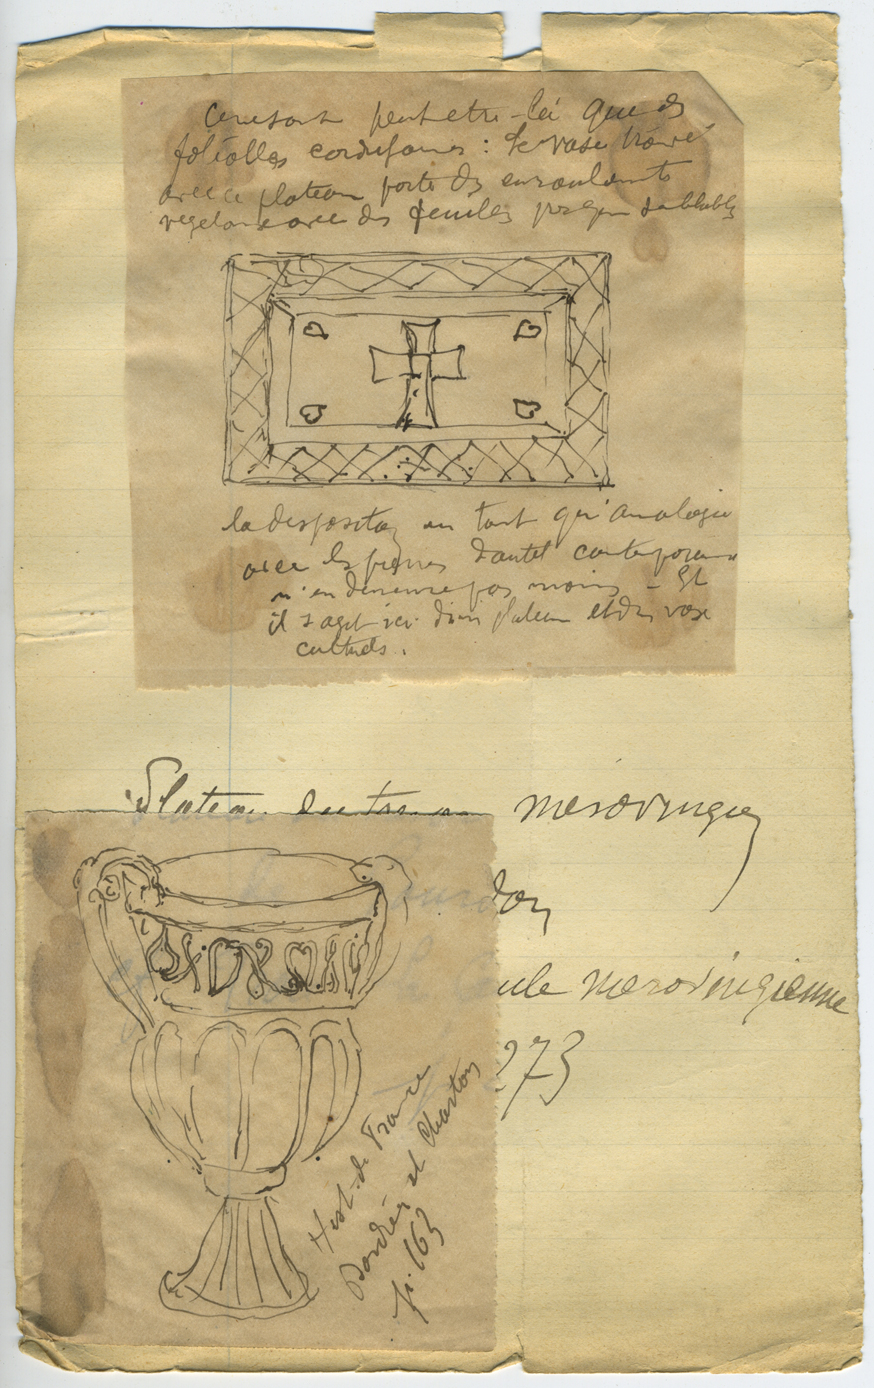 Ce ne sont peut etre là que des
foléolles cordiformes : Le vase trouvé
avec ce plateau porte des enroulements
vegetaux avec des feuilles presque semblables
la disposition en tant qu'analogie
avec les pierres d'autel contemporaines
n'en demeure pas moins - Et
il s'agit ici d'un plateau et d'un vase
cultuels.
Plateau du tresor merovingien
don
ule merovingienne
273
Hist. de France
Bordier et Charton
p. 163